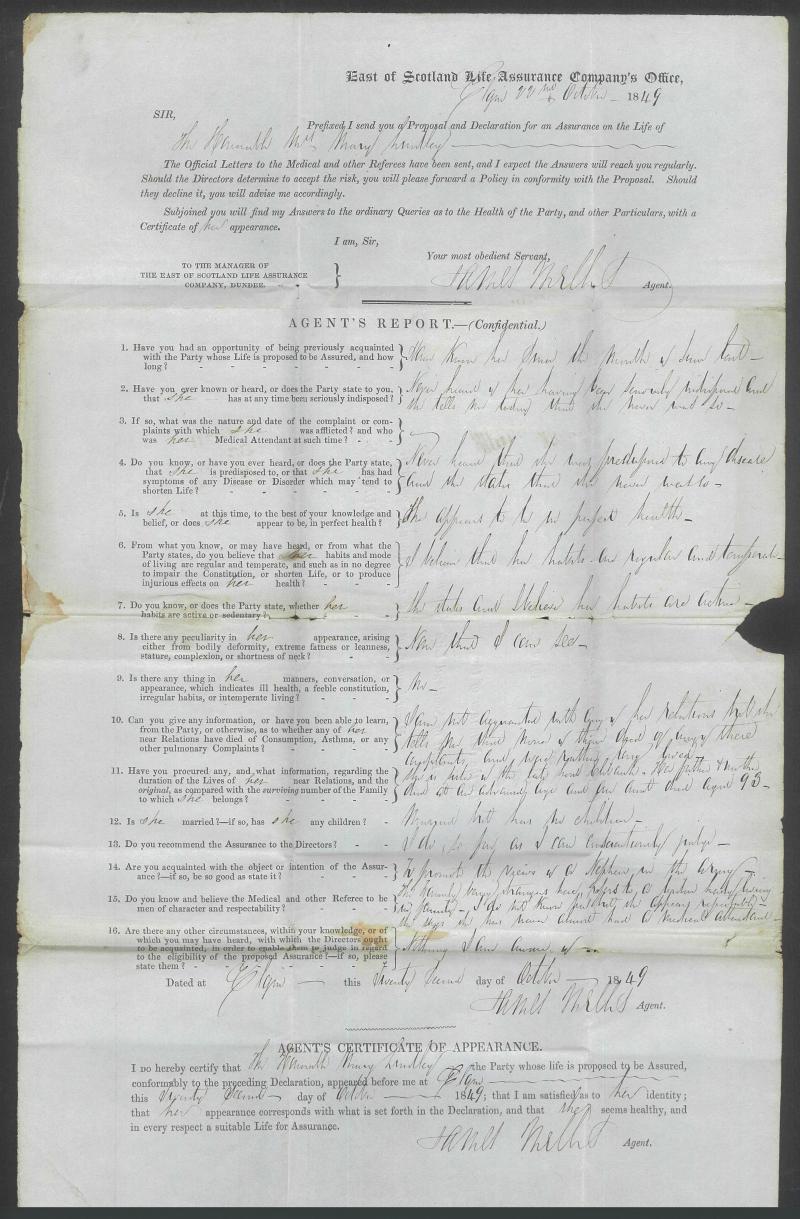 East of Scotland Life Assurance Company's Office,
Elgin 22nd October 1849
SIR,
Prefixed I send you a Proposal and Declaration for an Assurance on the Life of
The Honourable Mrs Mary Lindley
The Official Letters to the Medical and other Referees have been sent, and I expect the Answers will reach you regularly.
Should the Directors determine to accept the risk, you will please forward a Policy in conformity with the Proposal. Should
they decline it, you will advise me accordingly.
Subjoined you will find my Answers to the ordinary Queries as to the Health of the Party, and other Particulars, with a
Certificate of her appearance.
I am, Sir,
Your most obedient Servant,
TO THE MANAGER OF
THE EAST OF SCOTLAND LIFE ASSURANCE
COMPANY, DUNDEE.
James Agent.
AGENT'S REPORT.—(Confidential.)
1. Have you had an opportunity of being previously acquainted
with the Party whose Life is proposed to be Assured, and how
long?
Have known her since the month of June last
2. Have you ever known or heard, or does the Party state to you,
that she has at any time been seriously indisposed?
Never heard of her having been seriously indisposed and
she tells me today that she never was so
3. If so, what was the nature and date of the complaint or com-
plaints with which she was afflicted? and who
was her Medical Attendant at such time?
4. Do you know, or have you ever heard, or does the Party state,
that she is predisposed to, or that she has had
symptoms of any Disease or Disorder which may tend to
shorten Life?
Never heard that she was predisposed to any disease
and she states that she never was so
5. Is she at this time, to the best of your knowledge and
belief, or does she appear to be, in perfect health?
She appears to be in perfect health
6. From what you know, or may have heard, or from what the
Party states, do you believe that her habits and mode
of living are regular and temperate, and such as in no degree
to impair the Constitution, or shorten Life, or to produce
injurious effects on her health?
I believe that her habits are regular and temperate
7. Do you know, or does the Party state, whether her
habits are active or sedentary?
She states and I believe her habits are active
8. Is there any peculiarity in her appearance, arising
either from bodily deformity, extreme fatness or leanness,
stature, complexion, or shortness of neck?
None that I can see
9. Is there any thing in her manners, conversation, or
appearance, which indicates ill health, a feeble constitution,
irregular habits, or intemperate living?
No
10. Can you give any information, or have you been able to learn,
from the Party, or otherwise, as to whether any of her
near Relations have died of Consumption, Asthma, or any
other pulmonary Complaints?
I am not acquainted with any of her relations but she
tells me that none of them died of any of these
complaints
11. Have you procured any, and what information, regarding the
duration of the Lives of her near Relations, and the
original, as compared with the surviving number of the Family
to which she belongs?
She is sister of the late Lord. Her father & mother
died at an advanced age and an aunt died aged 93
12. Is she married?—if so, has she any children?
Married but has no children
13. Do you recommend the Assurance to the Directors?
I do, so far as I can conscientiously judge
14. Are you acquainted with the object or intention of the Assur-
ance?—if so, be so good as state it?
To promote the views of a Nephew in the army
15. Do you know and believe the Medical and other Referee to be
men of character and respectability?
I do not know
she says she has never almost had a medical attendant
16. Are there any other circumstances, within your knowledge, or of
which you may have heard, with which the Directors ought
to be acquainted, in order to enable them to judge in regard
to the eligibility of the proposed Assurance?—if so, please
state them?
Nothing I am aware of
Dated at Elgin this Twenty Second day of October 1849
James Agent.
AGENT'S CERTIFICATE OF APPEARANCE.
I do hereby certify that The Honourable Mary Lindley the Party whose life is proposed to be Assured,
conformably to the preceding Declaration, appeared before me at Elgin
this Twenty Second day of October 1849; that I am satisfied as to her identity;
that her appearance corresponds with what is set forth in the Declaration, and that she seems healthy, and
in every respect a suitable Life for Assurance.
James Agent.